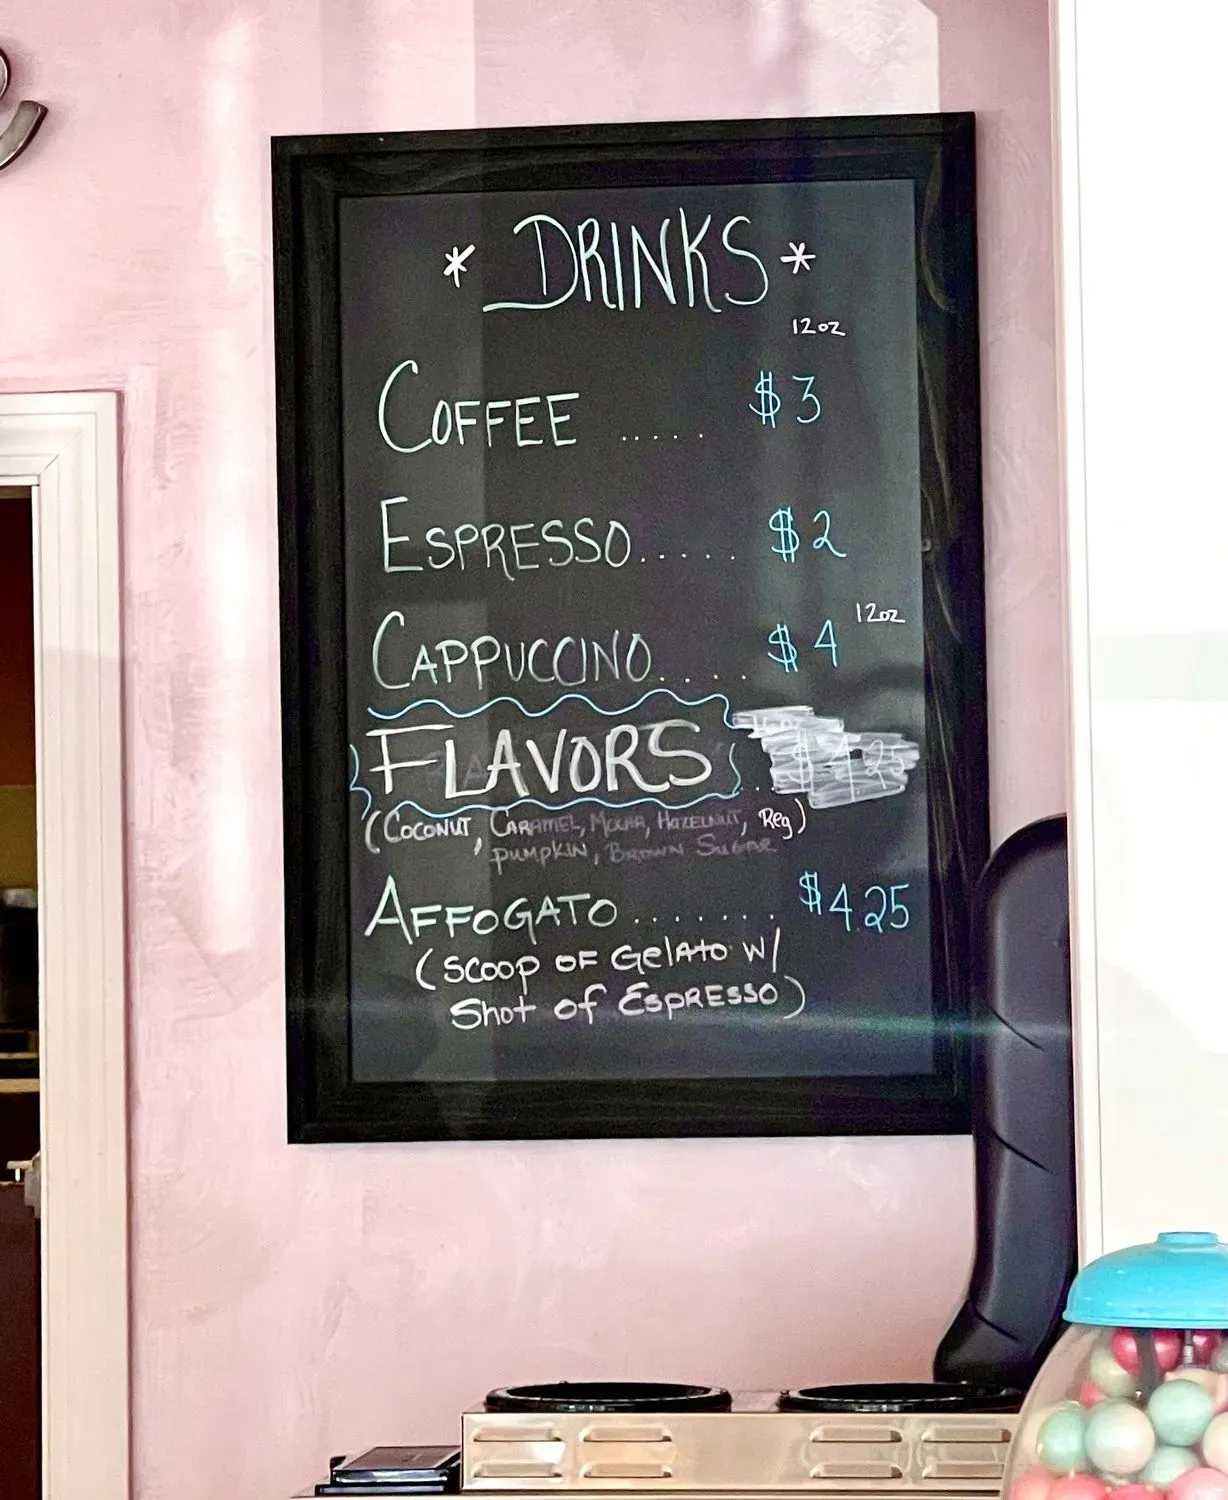 * DRINKS *
12oz
COFFEE ..... $3
ESPRESSO..... $2
12oz
CAPPUCCINO..... $4
FLAVORS
(COCONUT, CARAMEL, MOCHA, HAZELNUT, Reg)
PUMPKIN, BROWN SUGAR
AFFOGATO........ $4.25
(SCOOP OF GelAto w/
Shot of ESPRESSO)